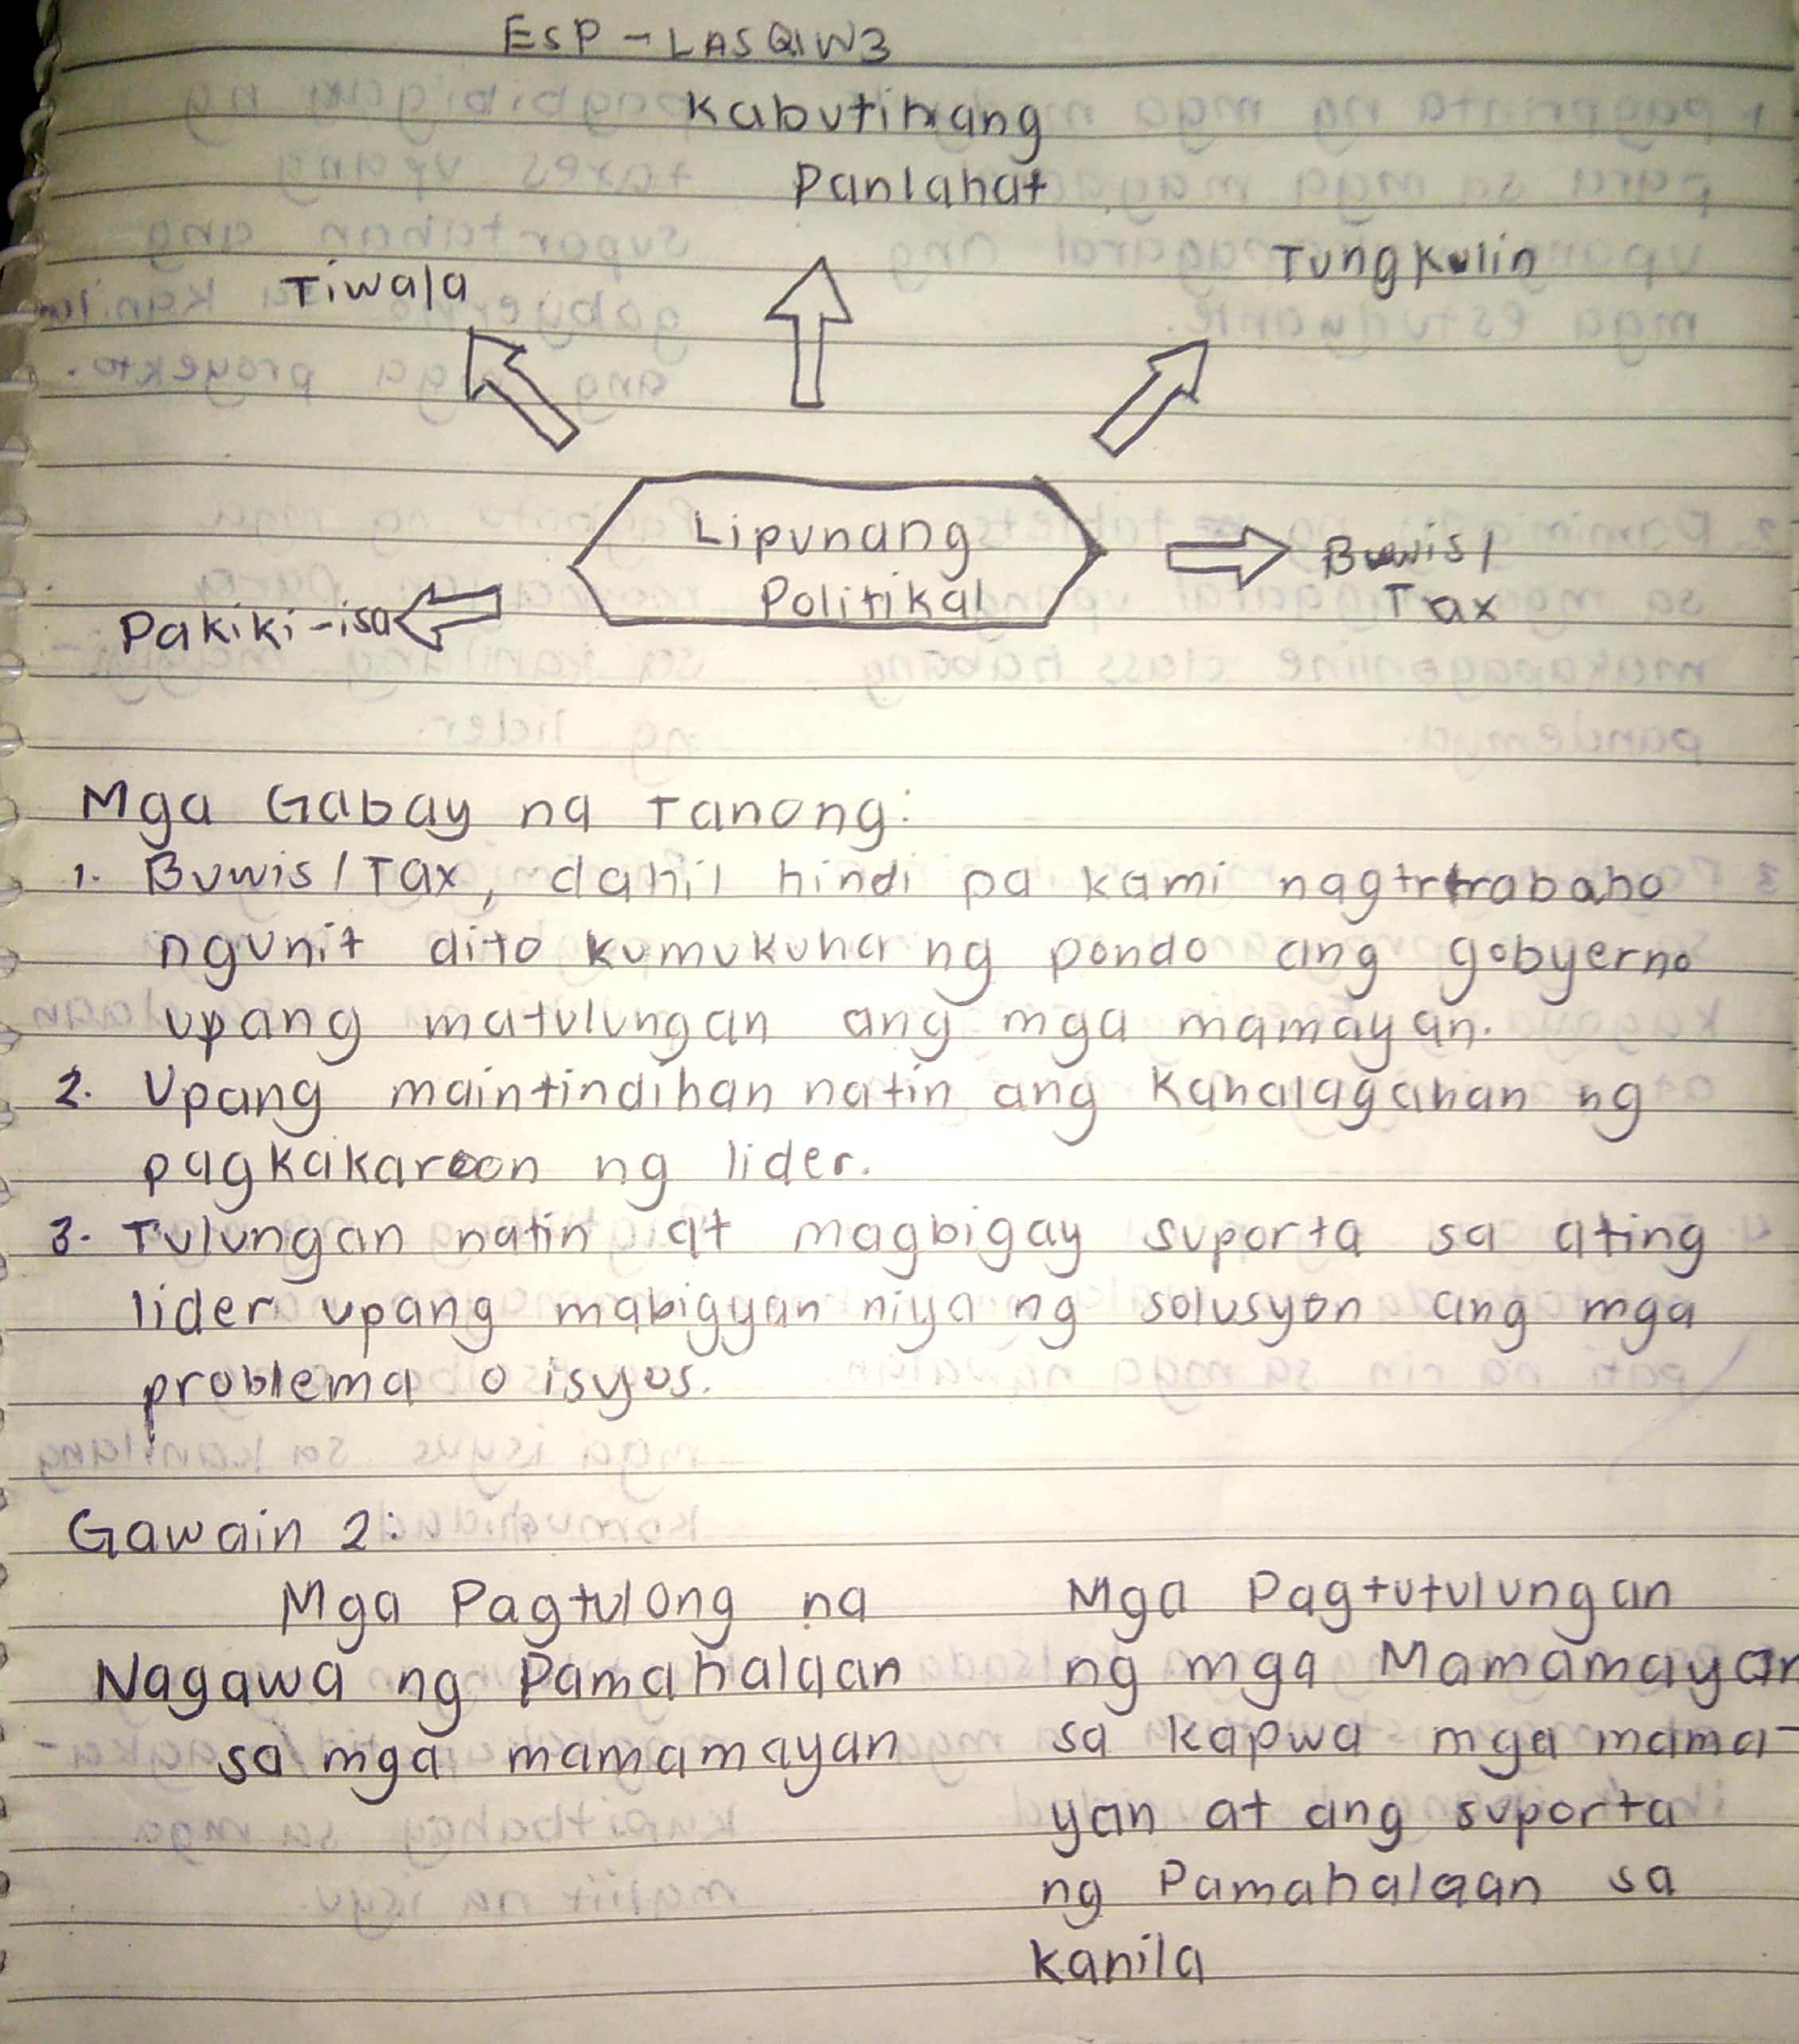 ESP - LAS Q1W3
Kabutihang
Panlahat
Tiwala
Tungkulin
Lipunang
Politikal
Buwis/
Tax
Pakiki-isa
Mga Gabay na Tanong:
1. Buwis/Tax, dahil hindi pa kami nagtrtrabaho
ngunit dito kumukuha ng pondo ang gobyerno
upang matulungan ang mga mamayan.
2. Upang maintindihan natin ang kahalagahan ng
pagkakaroon ng lider.
3. Tulungan natin at magbigay suporta sa ating
lider upang mabigyan niya ng solusyon ang mga
problema o isyus.
Gawain 2:
Mga Pagtulong na
Nagawa ng Pamahalaan
sa mga mamamayan
Mga Pagtutulungan
ng mga Mamamayan
sa kapwa mga mama-
yan at ang suporta
ng Pamahalaan sa
kanila